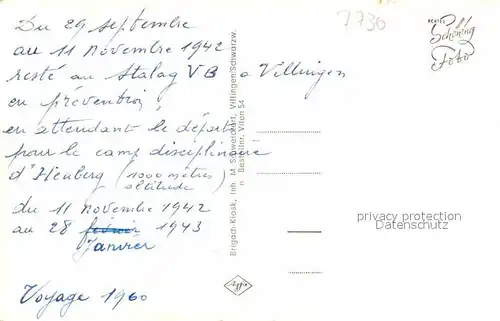 Du 29 septembre
au 11 novembre 1942
resté au Stalag VB a Villingen
en prévention,
en attendant le départ
pour le camp disciplinaire
d'Heuberg (1000 mètres altitude)
du 11 novembre 1942
au 28 février 1943
Janvier
Voyage 1960
7730
ECHTES
Schöning
Foto
Brigach-Kiosk, Inh. M. Schweickart, Villingen/Schwarzw.
Bestellnr. Vilen 54
Agfa
privacy protection
Datenschutz